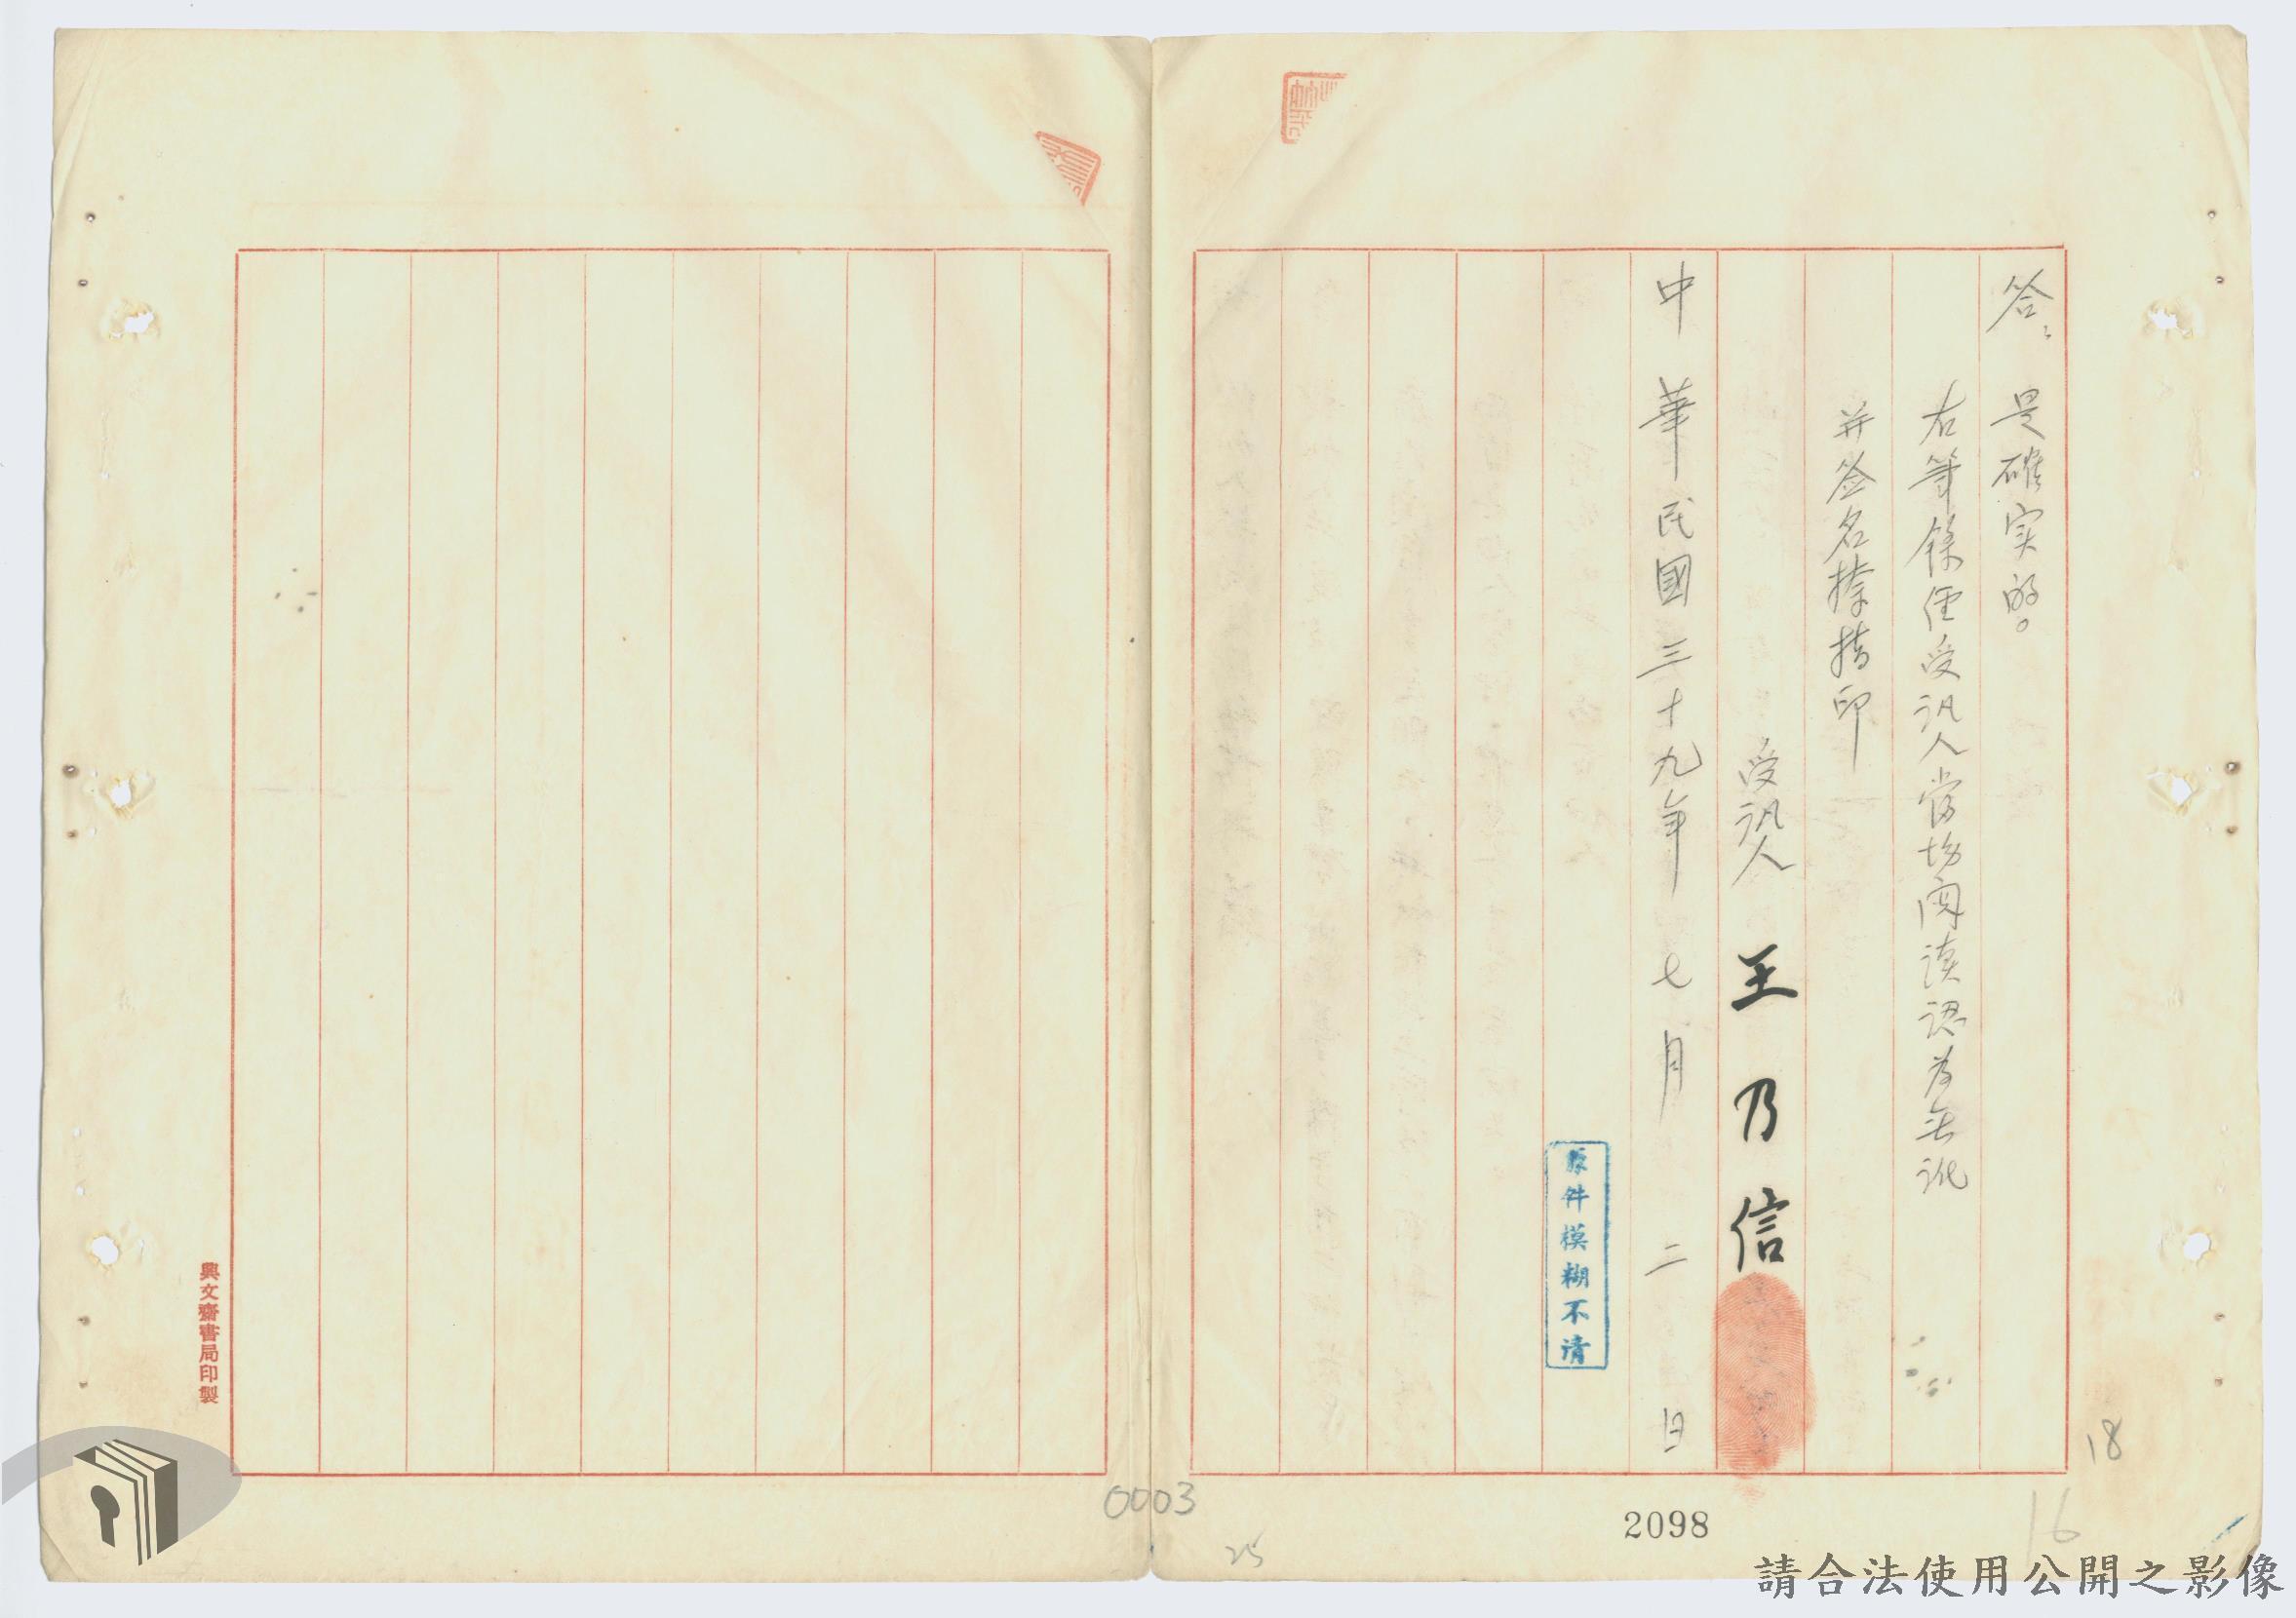 答、是確实的。
右筆錄經受訊人當場閱讀認為無訛
并签名捺指印
受訊人 王乃信
中華民國三十九年七月二日
原件模糊不清
18
16
2098
0003
25
興文齋書局印製
請合法使用公開之影像